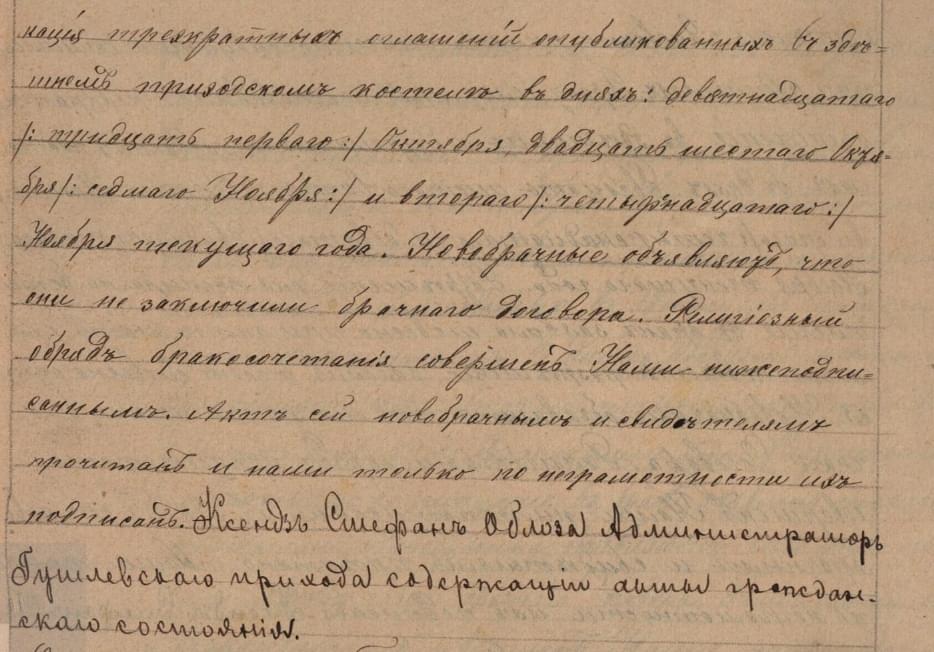 нація троекратныхъ оглашеній опубликованныхъ въ здѣ=
шнемъ приходскомъ костелѣ въ дняхъ: девятнадцатаго
/: тридцать перваго:/ Октября, двадцать шестаго Октя=
бря/: седмаго Ноября:/ и втораго/: четырнадцатаго:/
Ноября текущаго года. Новобрачные объявляютъ, что
они не заключили брачнаго договора. Религіозный
обрядъ бракосочетанія совершенъ Нами нижеподпи=
саннымъ. Актъ сей новобрачнымъ и свидѣтелямъ
прочитанъ и нами только по неграмотности ихъ
подписанъ. Ксендзъ Стефанъ Облоза Администраторъ
прихода содержащій акты граждан-
скаго состоянія.